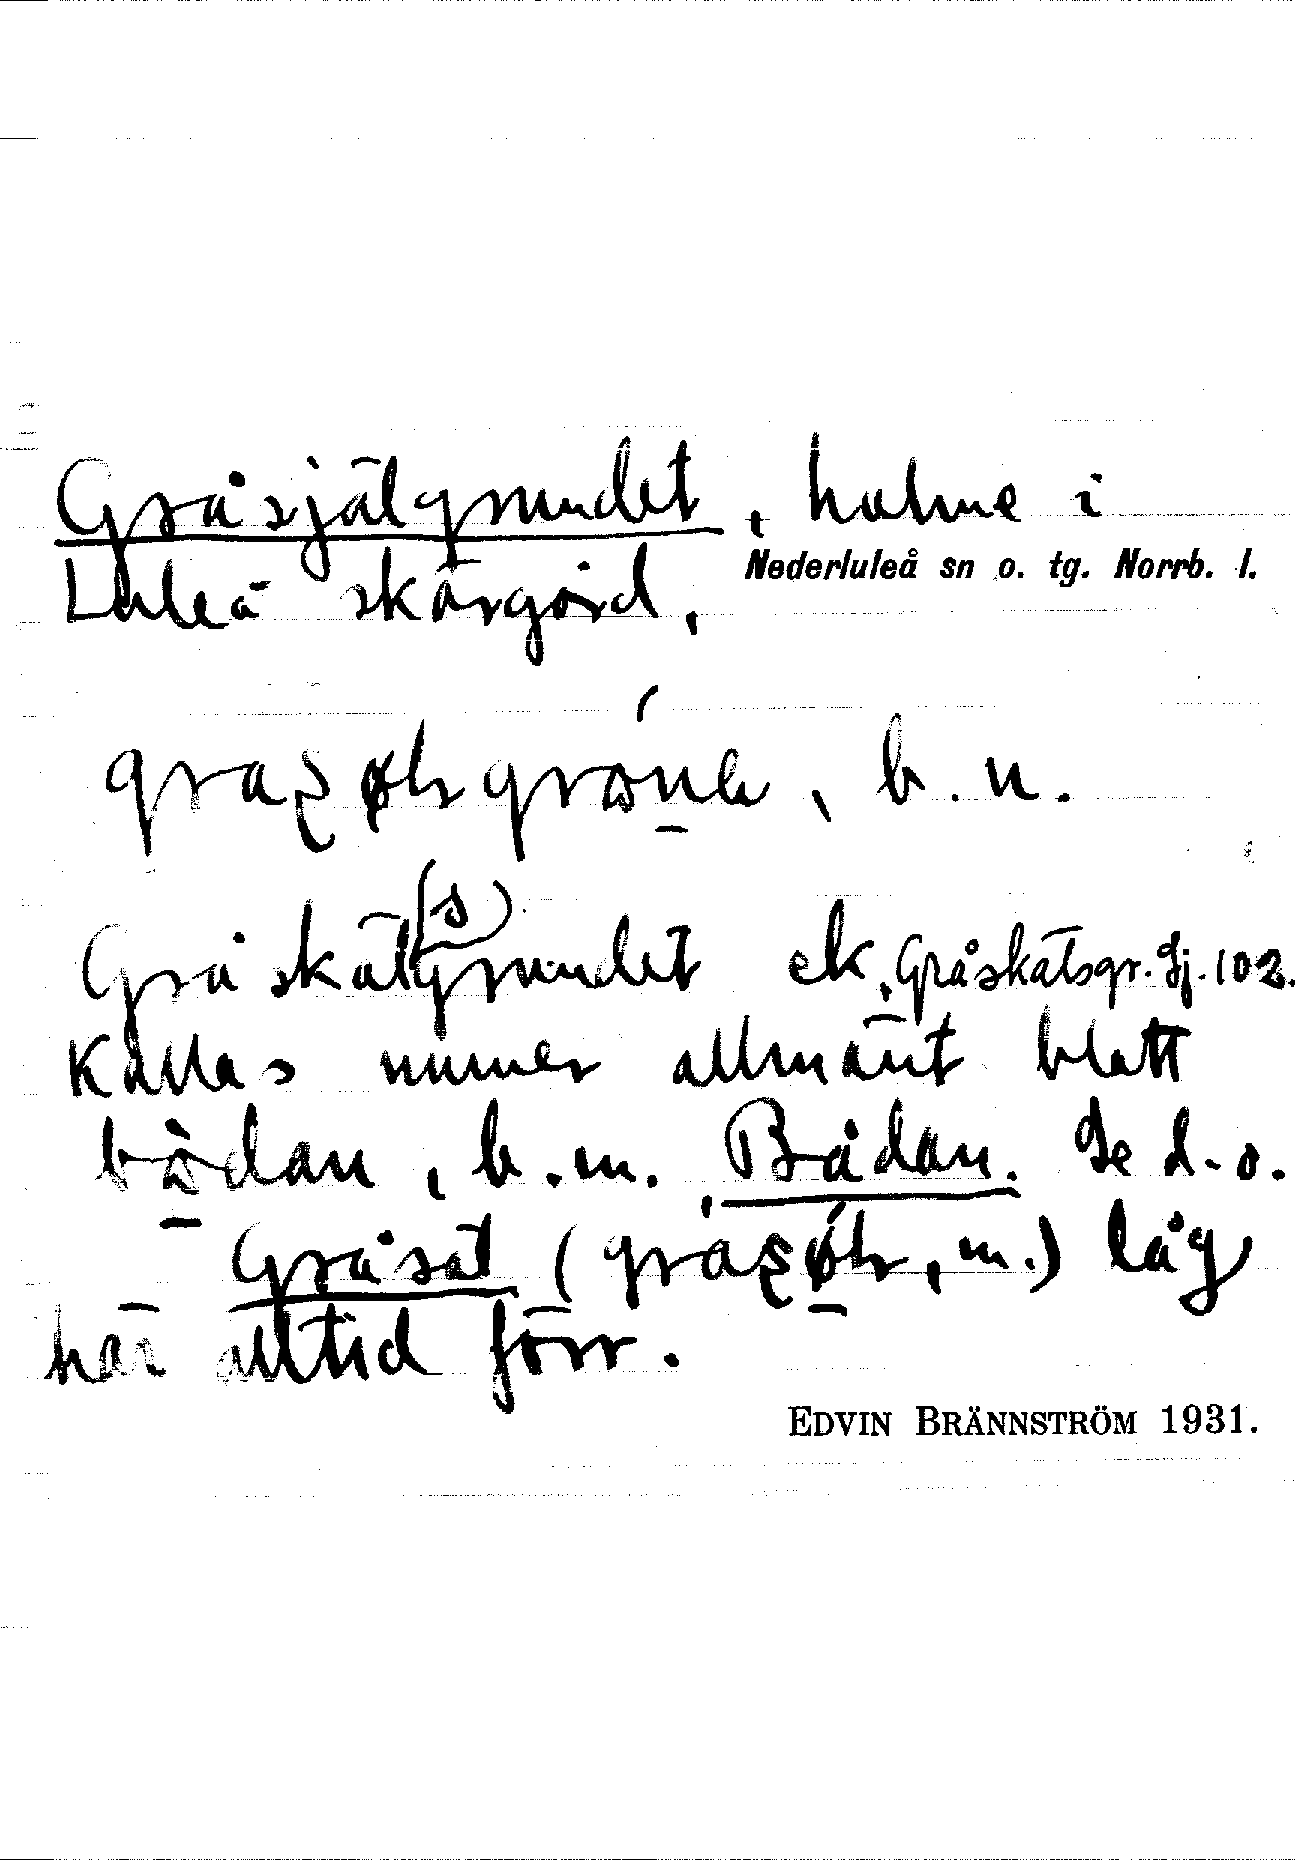 Gråsjälgrundet, holme i
Nederluleå sn o. tg. Norrb. l.
Luleå skärgård,
b. n.
Gråskäl(s)grundet ek, Gråskälsgr. Sj. 102.
Kallas numer allmänt blott
bådan, b.m. Bådan. Se d.o.
Gråsäl ( m.) låg
här alltid förr.
EDVIN BRÄNNSTRÖM 1931.